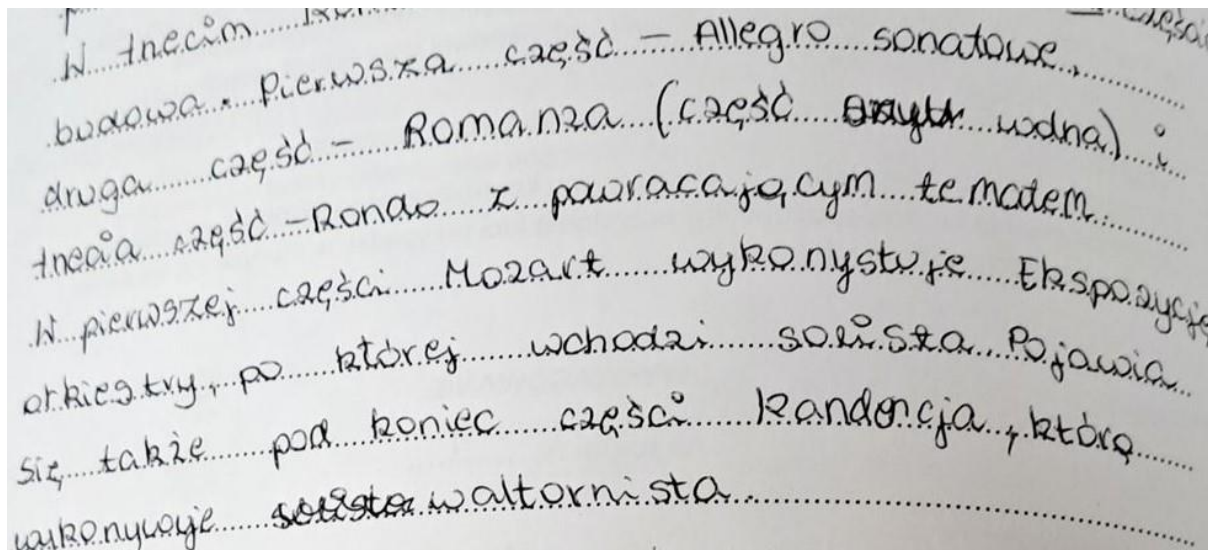 W trzecim
części
budowa. Pierwsza część - Allegro sonatowe,
druga część - Romanza (część wolna) i
trzecia część - Rondo z powracającym tematem.
W pierwszej części Mozart wykorzystuje Ekspozycję
orkiestry, po której wchodzi solista. Pojawia
się także pod koniec części kandencja, którą
wykonywuje solista waltornista.